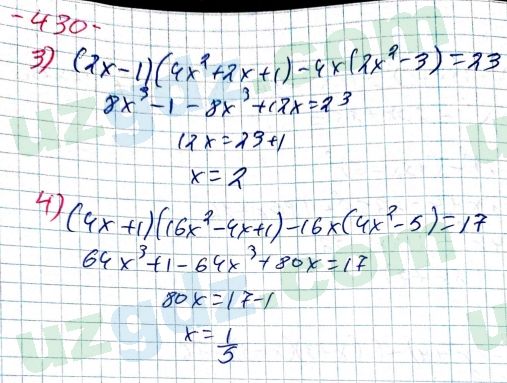 -430-
3) (2x-1)(4x²+2x+1)-4x(2x²-3)=23
8x³-1-8x³+12x=23
12x=23+1
x=2
4) (4x+1)(16x²-4x+1)-16x(4x²-5)=17
64x³+1-64x³+80x=17
80x=17-1
x=1/5
uzgdz.com